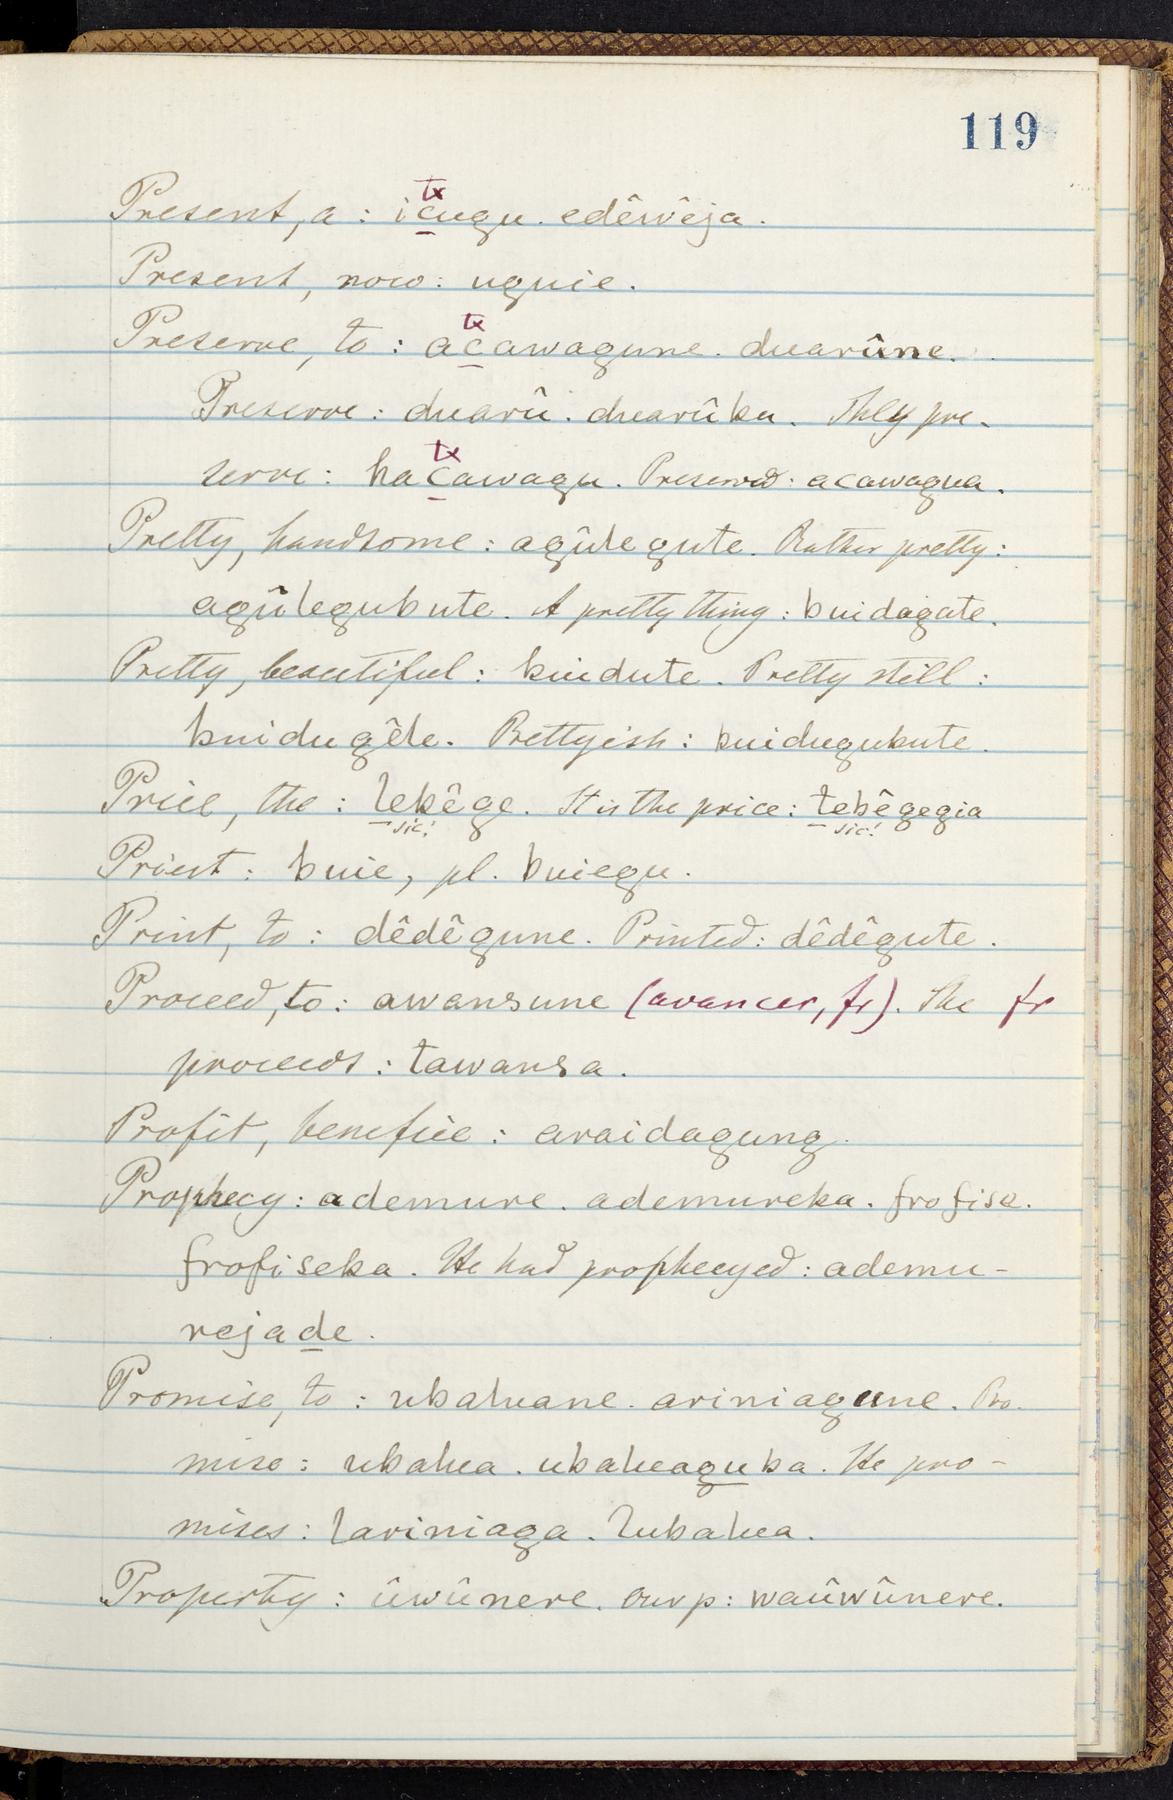 119
tx
Present, a : icugu. edêwêja.
Present, now: uguie.
tx
Preserve, to : acawagune. duarûne.
Preserve : duarû. duarûka. They pre-
tx
serve : hacawagu. Preserved: acawagua.
Pretty, handsome : agûlegute. Rather pretty:
agûlegubute. A pretty thing : buidagate.
Pretty, beautiful : buidute. Pretty still :
buidugêle. Prettyish : buidugubute.
Price, the : lebêge. It is the price : tebêgegia
sic! sic!
Priest : buie, pl. buiegu.
Print, to : dêdêgune. Printed: dêdêgute.
Proceed, to : awansune (avancer, fr). She fr
proceeds : tawansa.
Profit, benefice : araidagung.
Prophecy : ademure. ademureka. frofise.
frofiseka. He had prophecyed : ademu-
rejade.
Promise, to : ubaluane. ariniagune. Pro-
mise : ubalua. ubaluaguba. He pro-
mises : lariniaga. lubalua.
Property : ûwûnere. Our p: waûwûnere.